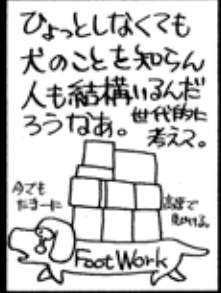 ひょっとしなくても
犬のことを知らん
人も結構いるんだ
ろうなあ。世代的に
考えて。
今でも
たまーに
高速で
見かける。
FootWork